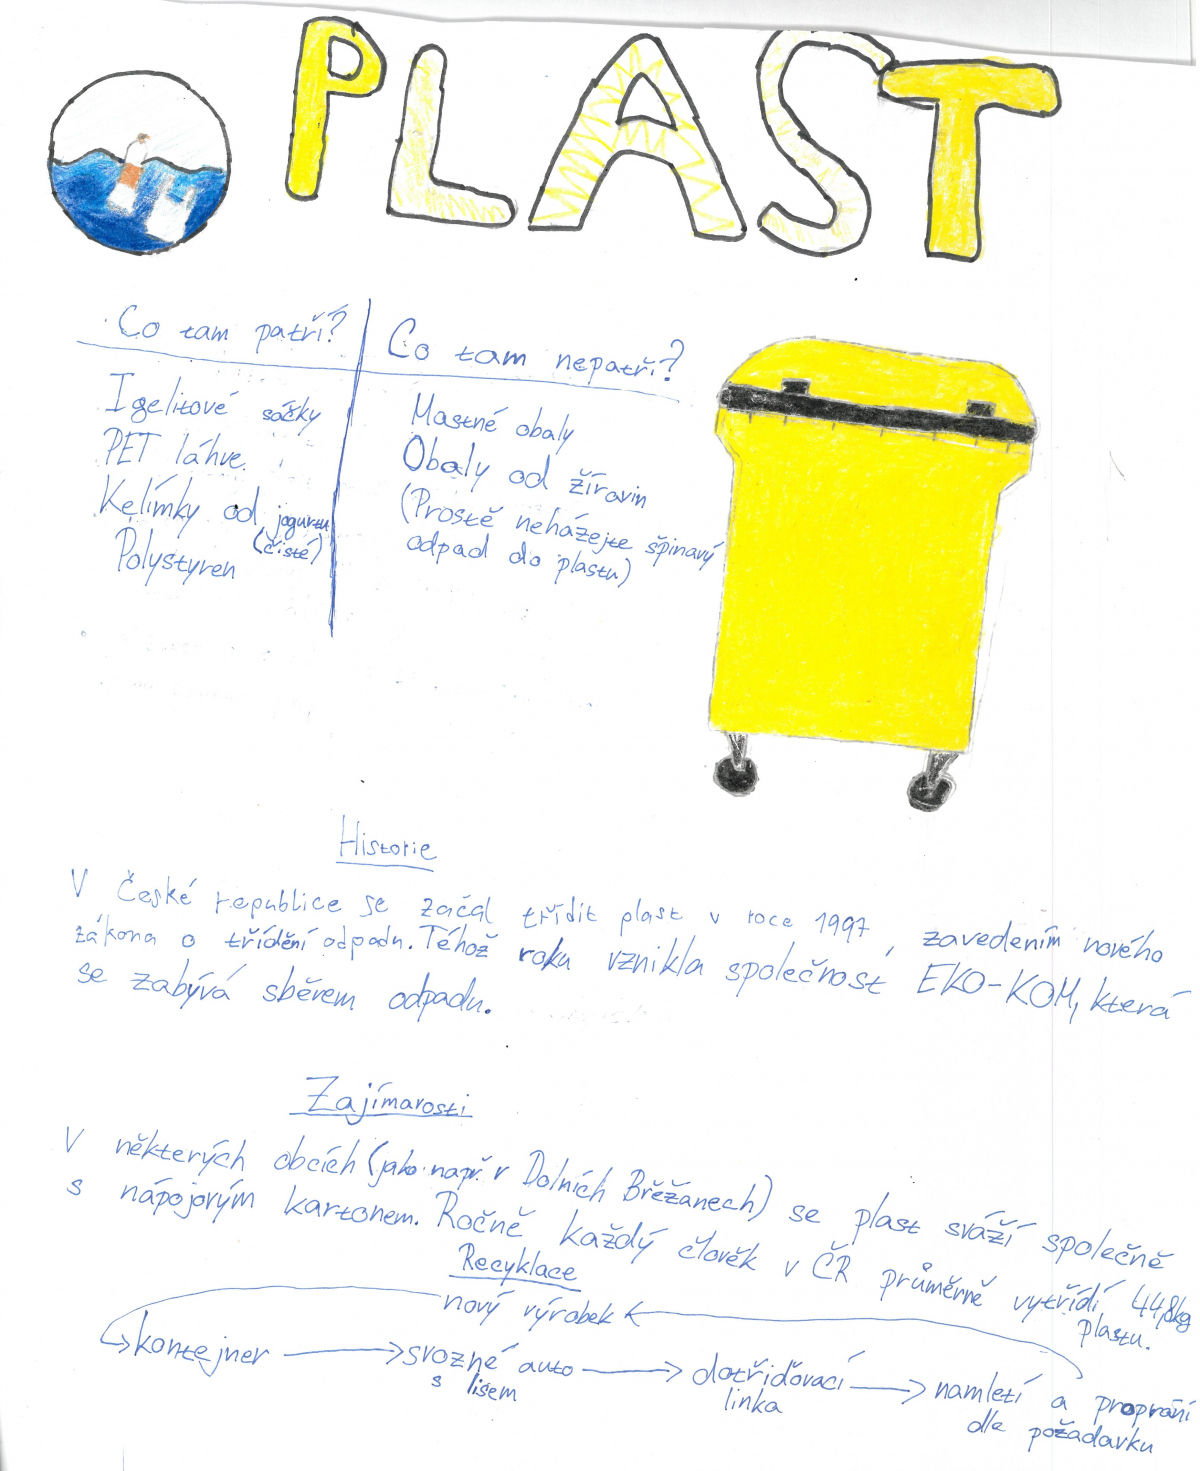 PLAST
Co tam patří?
Igelitové sáčky
PET láhve
Kelímky od jogurtu
(čisté)
Polystyren
Co tam nepatří?
Mastné obaly
Obaly od žíravin
(Prostě neházejte špinavý
odpad do plastu)
Historie
V České republice se začal třídit plast v roce 1997, zavedením nového
zákona o třídění odpadu. Téhož roku vznikla společnost EKO-KOM, která
se zabývá sběrem odpadu.
Zajímavosti
V některých obcích (jako např. v Dolních Břežanech) se plast sváží společně
s nápojovým kartonem. Ročně každý člověk v ČR průměrně vytřídí 44,8kg
plastu.
Recyklace
nový výrobek
kontejner
svozné auto
s lisem
dotřiďovací
linka
namletí a proprání
dle požadavku